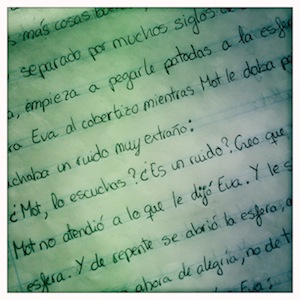 s más cosas bue
separado por muchos siglos de
a, empieza a pegarle patadas a la esfer
ra Eva al cobertizo mientras Mot le daba pa
chaba un ruido muy extraño:
¿Mot, lo escuchas? ¿Es un ruido? Creo que
Mot no atendió a lo que le dijó Eva. Y le s
esfera. Y de repente se abrió la esfera, a
ahora de alegría, no de t
Eva: